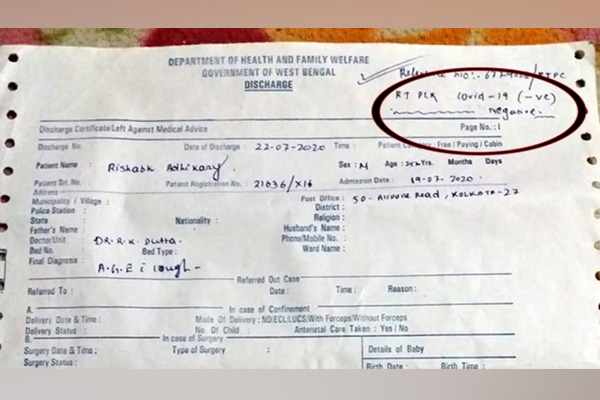 DEPARTMENT OF HEALTH AND FAMILY WELFARE
GOVERNMENT OF WEST BENGAL
DISCHARGE
RT PCR Covid-19 (-ve)
negative.
Discharge Certificate/Left Against Medical Advice Page No.: 1
Discharge No. Date of Discharge 22-07-2020 Time : Patient Category : Free / Paying / Cabin
Patient Name : Rishabh Adhikary Sex : M Age : Months Days
Patient Srl. No. : Patient Registration No. : 21636/X16 Admission Date : 19-07-2020
Address
Municipality / Village : Post Office : 50 - Airport Road, Kolkata-27
Police Station : District :
State Nationality : Religion :
Father's Name : Husband's Name :
Doctor/Unit : DR. R. K. Dutta. Phone/Mobile No. :
Bed No. : Bed Type : Ward Name :
Final Diagnosis :
A.G.E c cough -
Referred Out Case
Referred To : Date : Time : Reason :
A. In case of Confinement
Delivery Date & Time : Made Of Delivery : ND/ECL/LUCS/With Forceps/Without Forceps
Delivery Status : No. Of Child : Antenatal Care Taken : Yes / No
B. In case of Surgery
Surgery Date & Time : Type of Surgery : Details of Baby
Surgery Status : Birth Date : Birth Time :